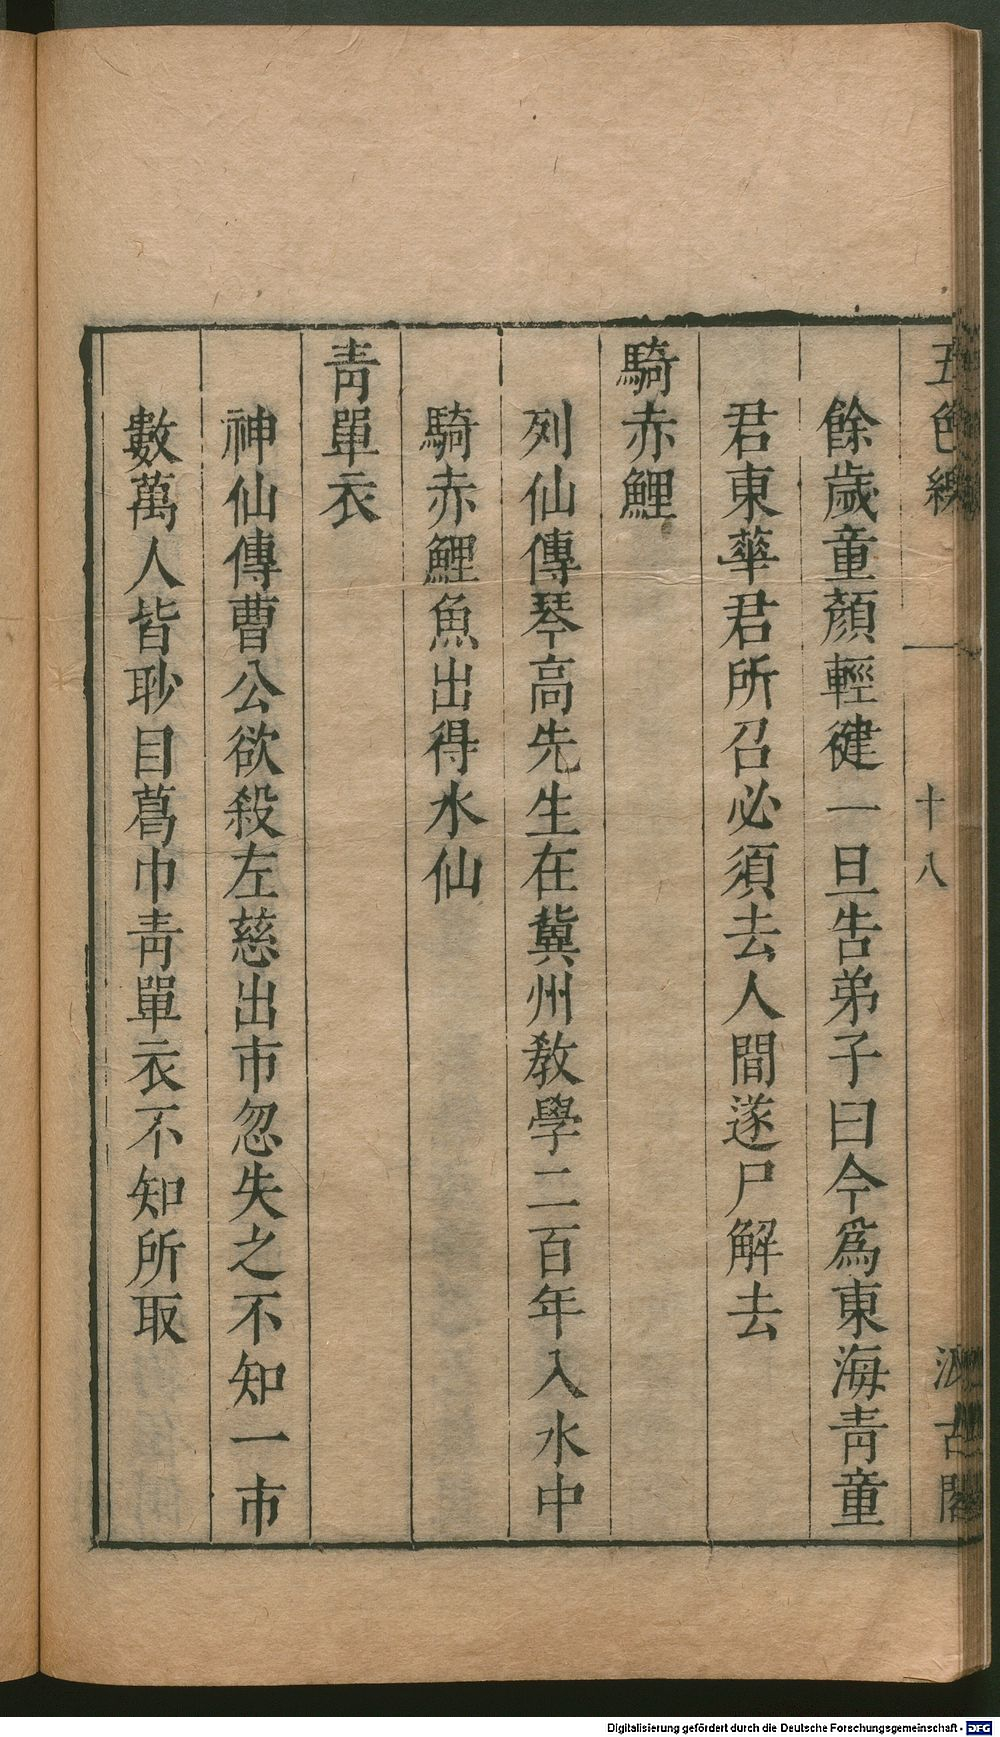 五色線 十八 汲古閣
餘歲童顏輕健一旦告弟子曰今爲東海靑童
君東華君所召必須去人間遂尸解去
騎赤鯉
列仙傳琴高先生在冀州教學二百年入水中
騎赤鯉魚出得水仙
靑單衣
神仙傳曹公欲殺左慈出市忽失之不知一市
數萬人皆眇目葛巾靑單衣不知所取
Digitalisierung gefördert durch die Deutsche Forschungsgemeinschaft - DFG